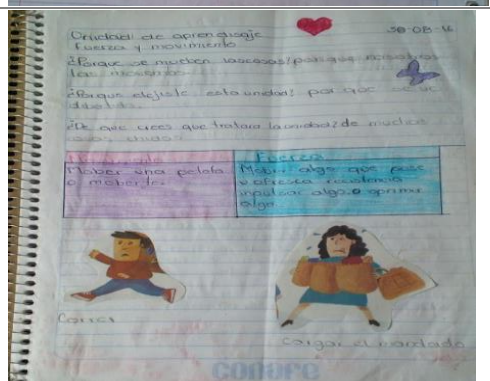 30-08-16
Unidad de aprendizaje
Fuerza y movimiento
¿Porque se mueben las cosas? porque nosotros
las movemos
¿Porque elejiste esta unidad? por que
¿De que crees que tratara la unidad? de muchas
cosas
Fuerza
Mober una pelota
o moberte
Mober algo que pese
o ofresca resistencia
inpulsar algo o oprimir
algo
Correr
cargar el mandado
conafe